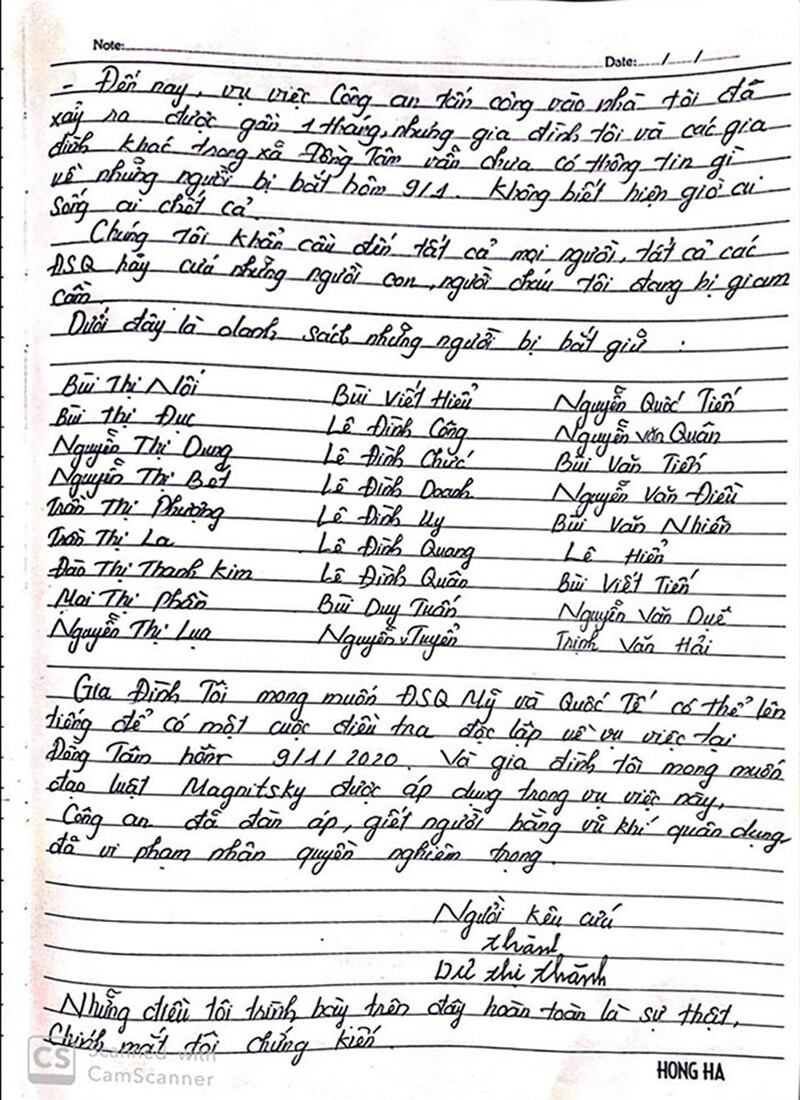 Note:
Date: / /
- Đến nay, vụ việc Công an tấn công vào nhà tôi đã
xảy ra được gần 1 tháng, nhưng gia đình tôi và các gia
đình khác trong xã Đồng Tâm vẫn chưa có thông tin gì
về những người bị bắt hôm 9/1. Không biết hiện giờ ai
sống ai chết cả.
Chúng tôi khẩn cầu đến tất cả mọi người, tất cả các
ĐSQ hãy cứu những người con, người cháu tôi đang bị giam
cầm.
Dưới đây là danh sách những người bị bắt giữ :
Bùi Thị Nối Bùi Viết Hiểu Nguyễn Quốc Tiến
Bùi Thị Đục Lê Đình Công Nguyễn Văn Quân
Nguyễn Thị Dung Lê Đình Chức Bùi Văn Tiến
Nguyễn Thị Bét Lê Đình Doanh Nguyễn Văn Điều
Trần Thị Phượng Lê Đình Uy Bùi Văn Nhiên
Trần Thị La Lê Đình Quang Lê Hiển
Đào Thị Thanh Kim Lê Đình Quân Bùi Viết Tiến
Mai Thị Phần Bùi Duy Tuấn Nguyễn Văn Duệ
Nguyễn Thị Lụa Nguyễn v Tuyển Trịnh Văn Hải
Gia Đình Tôi mong muốn ĐSQ Mỹ và Quốc Tế có thể lên
tiếng để có một cuộc điều tra độc lập về vụ việc tại
Đồng Tâm hôm 9/1/2020. Và gia đình tôi mong muốn
đạo luật Magnitsky được áp dụng trong vụ việc này,
Công an đã đàn áp, giết người bằng vũ khí quân dụng,
đã vi phạm nhân quyền nghiêm trọng.
Người kêu cứu
Thành
Dư Thị Thành
Những điều tôi trình bày trên đây hoàn toàn là sự thật,
Chính mắt tôi chứng kiến.
CS Scanned with
CamScanner
HONG HA